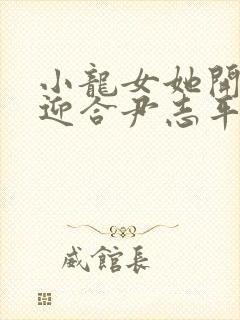 小龍女她開
迎合尹志平
威館長